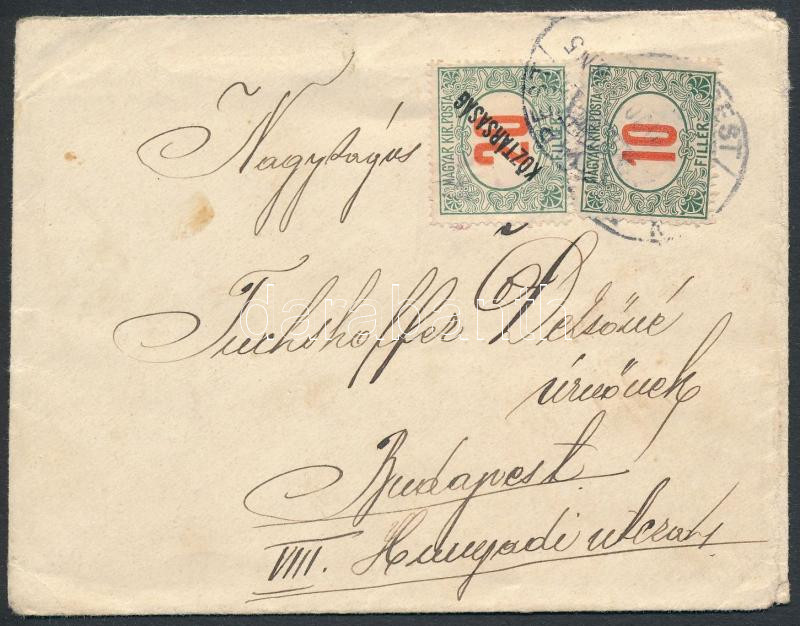 MAGYAR KIR. POSTA
20
FILLÉR
KÖZTÁRSASÁG
MAGYAR KIR. POSTA
10
FILLÉR
PEST
EST
Nagyságos
Tuchshoffer Dezsőné
úrnőnek
Budapest
VIII. Hunyadi utca
darabanth